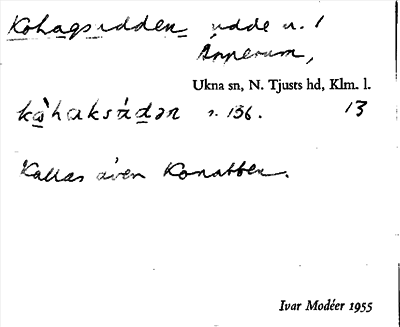 Kohagsudden udde n. 1
Ånnerum,
Ukna sn, N. Tjusts hd, Klm. l.
kὰhaksádən s. 136. 13
Kallas även Konabben.
Ivar Modéer 1955